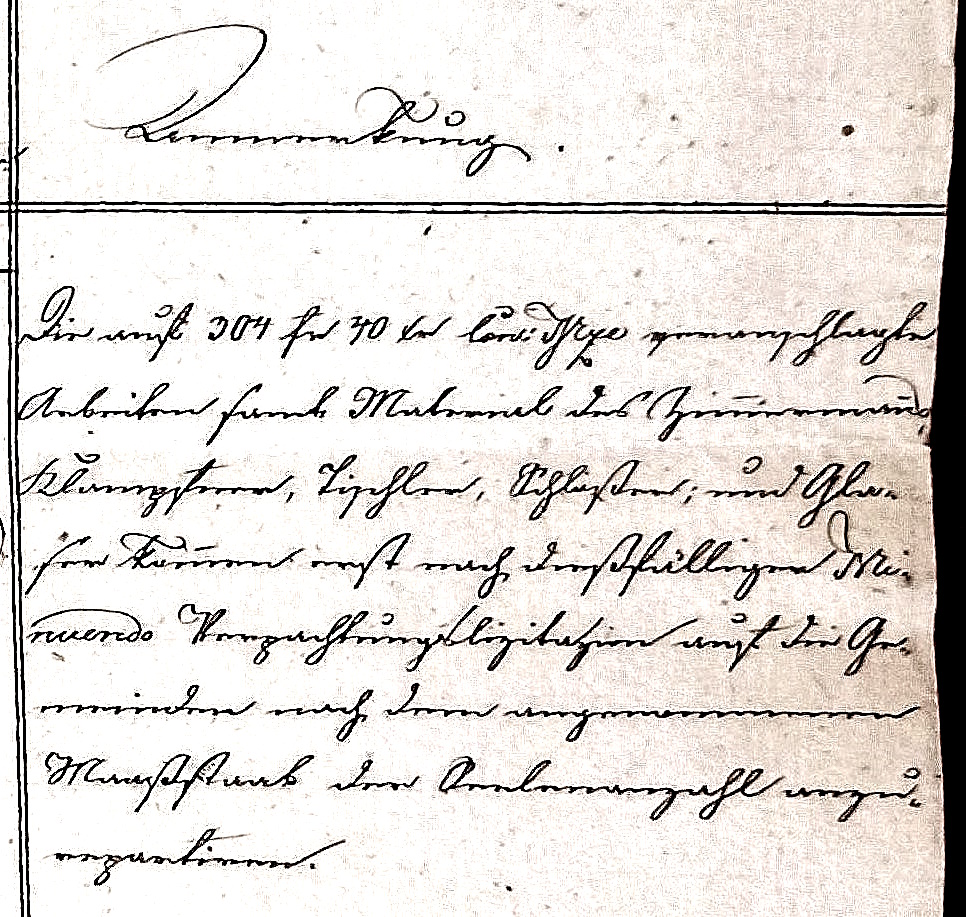 Anmerkung.
Die auf 304 fr 40 xr veranschlagte
Arbeiten samt Material des Zimermans,
Klampfner, Tischler, Schlosser, und Gla-
ser könen erst nach diesfälliger Mi-
nuendo Verpachtungslizitazion auf die Ge-
meinden nach dem angenommenen
Maaßstaab der Seelenanzahl anzu-
repartiren.